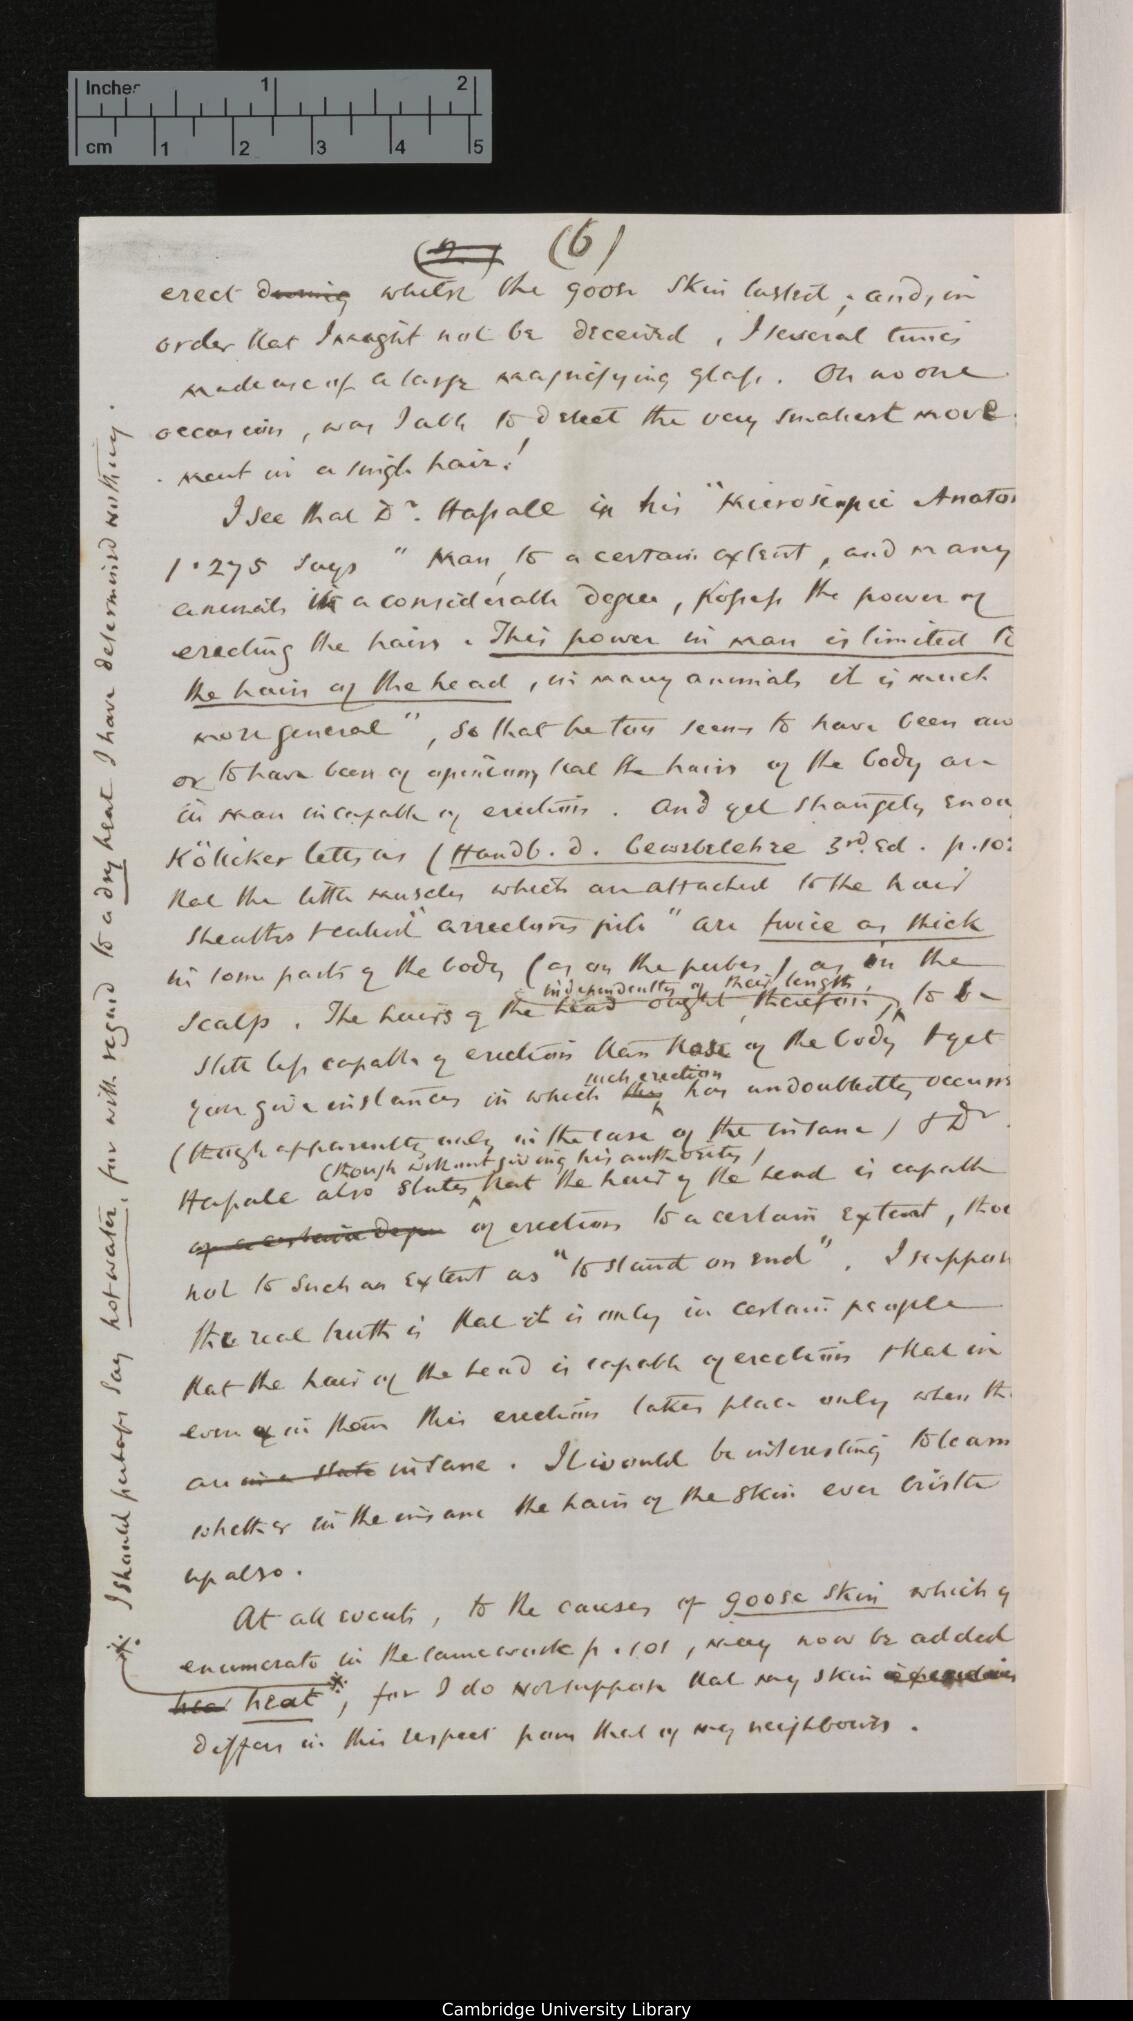 Inches 1 2
cm 1 2 3 4 5
(n) (6)
erect during whilst the goose skin lasted; and, in
order that I might not be deceived, I several times
made use of a large magnifying glass. On no one
occasion, was I able to detect the very smallest move-
ment in a single hair!
I see that Dr. Hassall in his "Microscopic Anato
1.275 says "Man, to a certain extent, and many
animals in a considerable degree, possess the power of
erecting the hairs. This power in man is limited to
the hairs of the head, in many animals it is much
more general", so that he too seems to have been aw
or to have been of opinion, that the hairs of the body are
in man incapable of erection. And yet strangely enou
Kölliker tells us (Handb. d. Gewebelehre 3rd. Ed. p. 10
that the little muscles which are attached to the hair
sheaths & called "arrectores pili" are twice as thick
in some parts of the body (as on the pubes) as in the
independently of their length,
scalp. The hairs of the head ought, therefore, to be
still less capable of erection than those of the body & yet
such erection
you give instances in which this has undoubtedly occurre
(though apparently only in the case of the insane) & Dr.
(though without giving his authority)
Hassall also states that the hair of the head is capable
of a certain degree of erection to a certain extent, tho
not to such an extent as "to stand on end". I suppose
the real truth is that it is only in certain people
that the hair of the head is capable of erection & that in
even in them this erection takes place only when th
are in a state insane. It would be interesting to learn
whether in the insane the hairs of the skin ever bristle
up also.
At all events, to the causes of goose skin which y
enumerate in the same work p. 101, may now be added
heat*, for I do not suppose that my skin
differs in this respect from that of my neighbours.
* I should perhaps say hot water, for with regard to a dry heat I have determined nothing.
Cambridge University Library